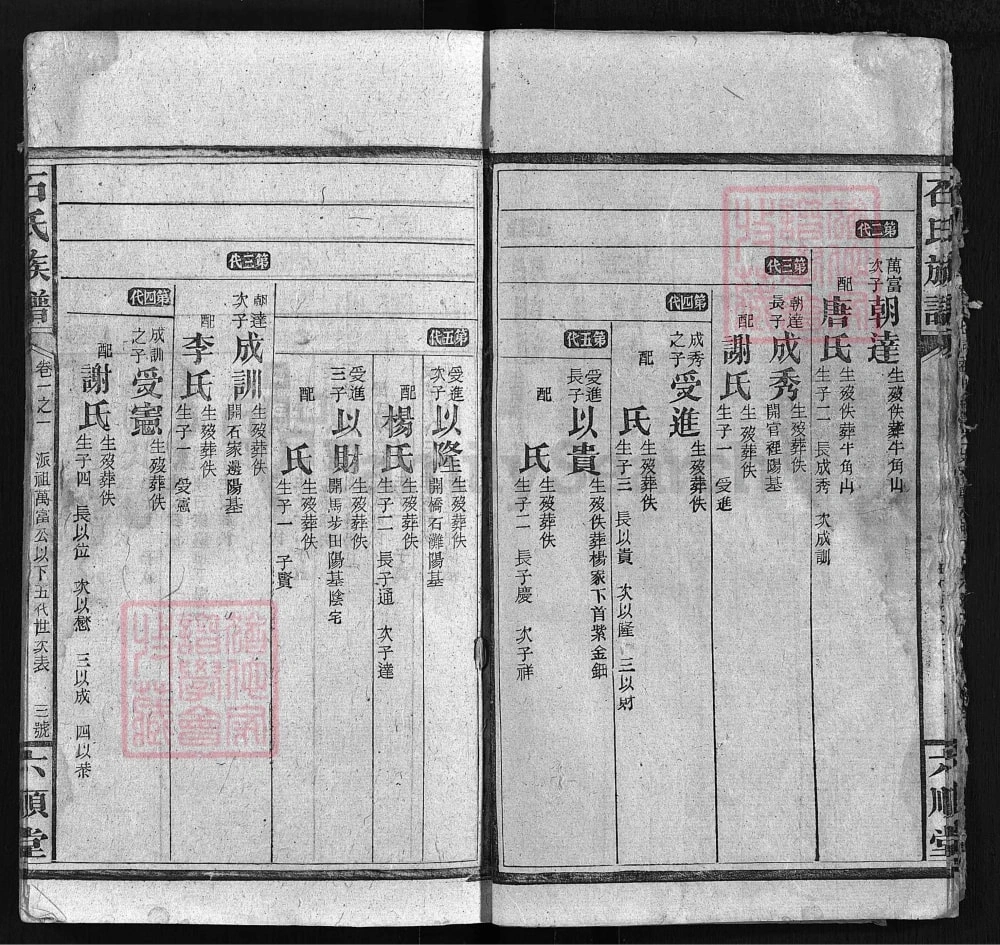 石氏族譜
六順堂
第二代
萬富
次子
朝達
生歿佚葬牛角山
配
唐氏
生歿佚葬牛角山
生子二 長成秀 次成訓
第三代
朝達
長子
成秀
生歿葬佚
開官裡陽基
配
謝氏
生歿葬佚
生子一 受進
第四代
成秀
之子
受進
生歿葬佚
配
氏
生歿葬佚
生子三 長以貴 次以隆 三以財
第五代
受進
長子
以貴
生歿佚葬楊家下首紫金鈿
配
氏
生歿葬佚
生子二 長子慶 次子祥
第五代
受進
次子
以隆
生歿葬佚
開橋石灘陽基
配
楊氏
生歿葬佚
生子二 長子通 次子達
受進
三子
以財
生歿葬佚
開馬步田陽基陰宅
配
氏
生歿葬佚
生子一 子賢
第三代
朝達
次子
成訓
生歿葬佚
開石家邊陽基
配
李氏
生歿葬佚
生子一 受憲
第四代
成訓
之子
受憲
生歿葬佚
配
謝氏
生歿葬佚
生子四 長以位 次以懋 三以成 四以恭
石氏族譜
卷一之一 派祖萬富公以下五代世次表 三號
六順堂